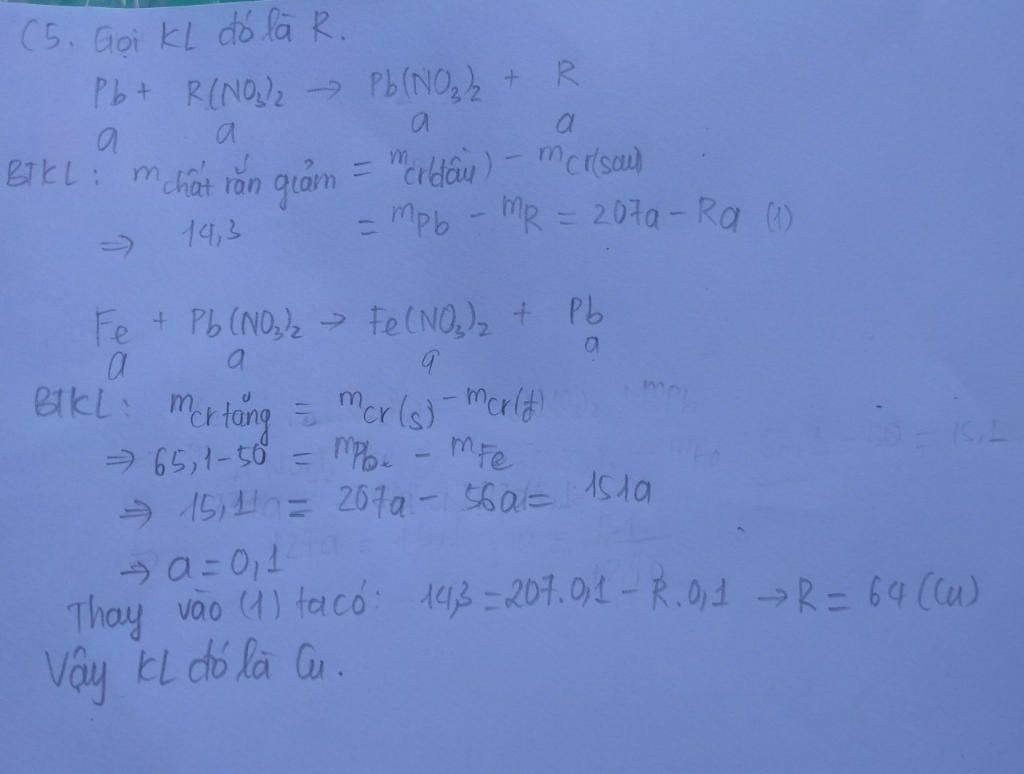 C5. Gọi KL đó là R.
Pb + R(NO3)2 → Pb(NO3)2 + R
a a a a
BTKL: mchất rắn giảm = mcr(đầu) - mcr(sau)
⇒ 14,3 = mPb - mR = 207a - Ra (1)
Fe + Pb(NO3)2 → Fe(NO3)2 + Pb
a a a a
BTKL: mcr tăng = mcr(s) - mcr(đ)
⇒ 65,1-50 = mPb - mFe
⇒ 15,1 = 207a - 56a = 151a
→ a = 0,1
Thay vào (1) ta có: 14,3 = 207.0,1 - R.0,1 → R = 64 (Cu)
Vậy KL đó là Cu.